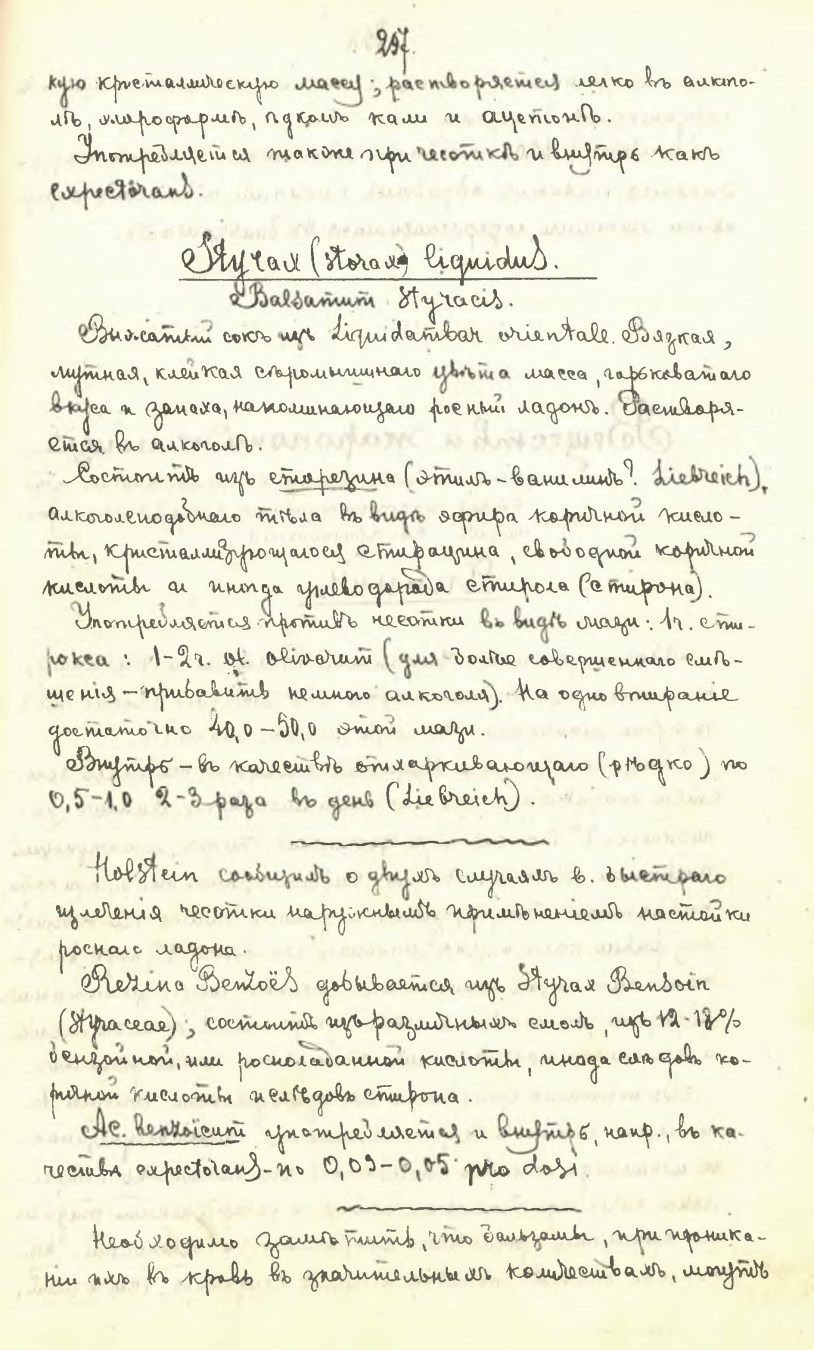 257.
кую кристаллическую массу; растворяется легко въ алкого-
лѣ, хлороформѣ, ѣдкомъ кали и ацетонѣ.
Употребляется также при чесоткѣ и внутрь какъ
expectorans.
Styrax (storax) liquidus.
Balsamum Styracis.
Выжатый сокъ изъ Liquidambar orientale. Вязкая,
мутная, клейкая сѣромышинаго цвѣта масса, горьковатаго
вкуса и запаха, напоминающаго росный ладонъ. Растворя-
ется въ алкоголѣ.
Состоитъ изъ старезина (этилъ-ванилинъ? Liebreich),
алкоголеподобнаго тѣла въ видѣ эфира коричной кисло-
ты, кристаллизующагося стирацина, свободной коричной
кислоты и иногда углеводорода стирола (стирона).
Употребляется противъ чесотки въ видѣ мази: 1ч. сти-
ракса: 1-2ч. ol. olivarum (для болѣе совершеннаго смѣ-
щенія – прибавить немного алкоголя). На одно втираніе
достаточно 40,0-50,0 этой мази.
Внутрь – въ качествѣ отхаркивающаго (рѣдко) по
0,5-1,0 2-3 раза въ день (Liebreich).
Holstein сообщилъ о двухъ случаяхъ в. быстраго
излеченія чесотки наружнымъ примѣненіемъ настойки
роснаго ладона.
Rezina Benzoës добывается изъ Styrax Bensoin
(Styraceae); состоитъ изъ различныхъ смолъ, изъ 12-18%
бензойной, или росноладанной кислоты, иногда слѣдовъ ко-
ричной кислоты и слѣдовъ стирона.
Ac. benzoïcum употребляется и внутрь, напр., въ ка-
чествѣ expectorans - по 0,03-0,05 pro dosi.
Необходимо замѣтить, что бальзамы, при проника-
ніи ихъ въ кровь въ значительныхъ количествахъ, могутъ